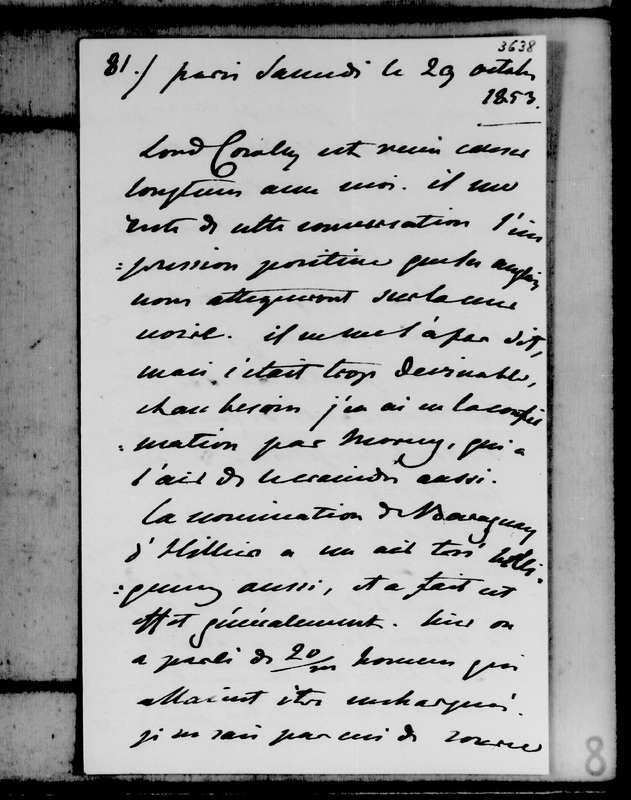 3638
81./ paris Samedi le 29 octobre
1853.
Lord Cowley est venu causer
longtems avec moi. il me
reste de cette conversation l'im
=pression positive que les anglais
nous attaqueront sur la mer
noire. il ne me l'a pas dit,
mais c'était trop devinable,
& au besoin j'en ai eu la confir
=mation par Morny, qui a
l'air de le craindre aussi.
la nomination de Baraguay
d'Hilliers a un air très belli-
=queux aussi, et a fait cet
effet généralement. hier on
a parlé de 20/m hommes qui
allaient être embarqués.
je ne sais pas ceci de source
8